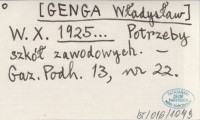 [GENGA Władysław]
W. X. 1925... Potrzeby
szkół zawodowych. —
Gaz. Podh. 13, nr 22.